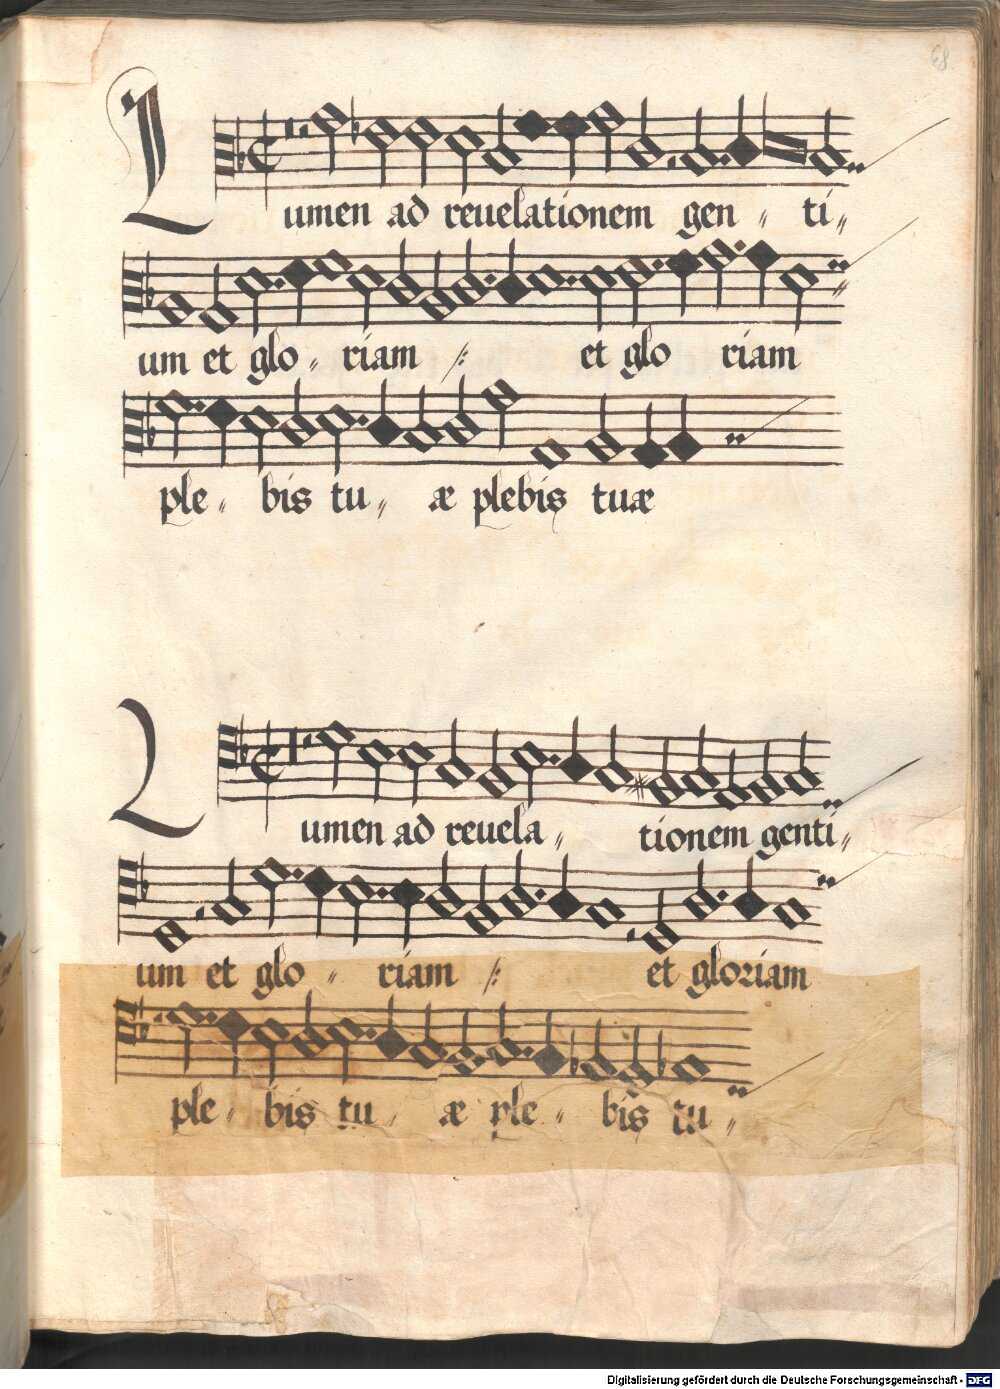 68
Lumen ad reuelationem gen〃 ti〃
um et glo〃 riam /: et glo riam
ple〃 bis tu〃 æ plebis tuæ
Lumen ad reuela〃 tionem genti〃
um et glo〃 riam /: et gloriam
ple〃 bis tu〃 æ ple〃 bis tu〃
Digitalisierung gefördert durch die Deutsche Forschungsgemeinschaft - DFG